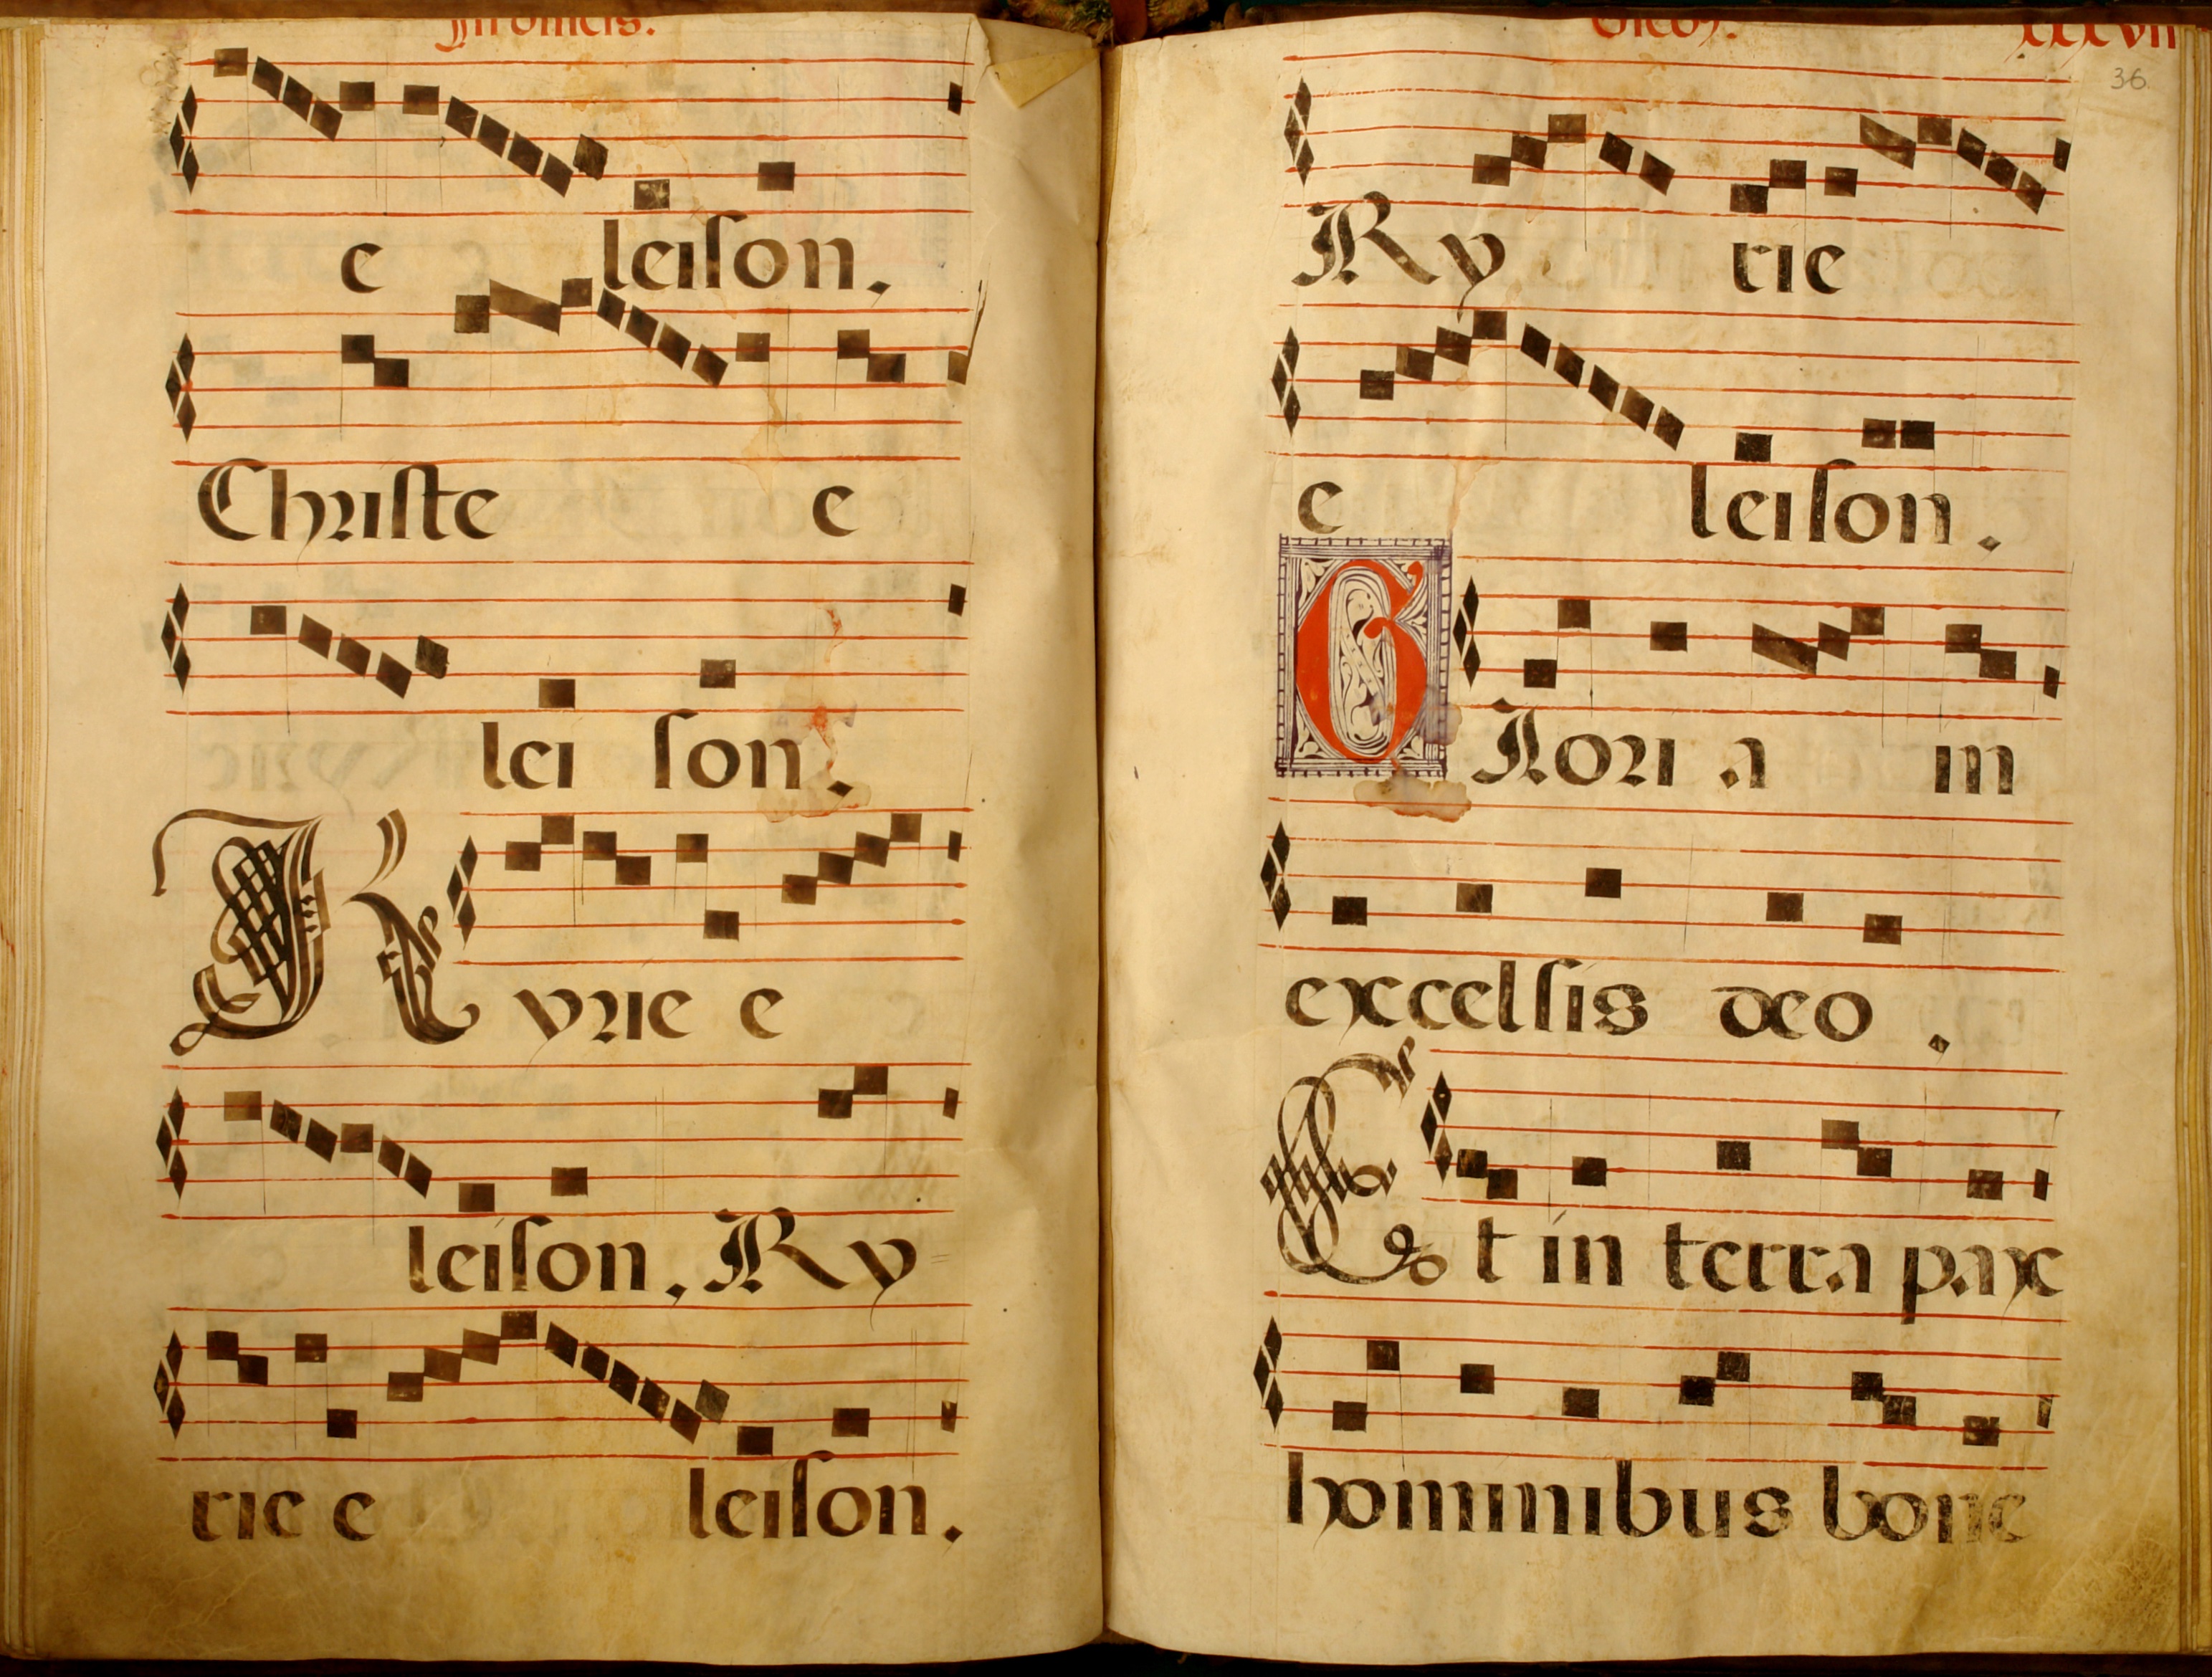 e leison.
Christe e
lei son.
Kyrie e
leison. Ky
rie e leison.
xxxvii
36
Ky rie
e leison.
Glori a in
excelsis deo.
Et in terra pax
hominibus bone